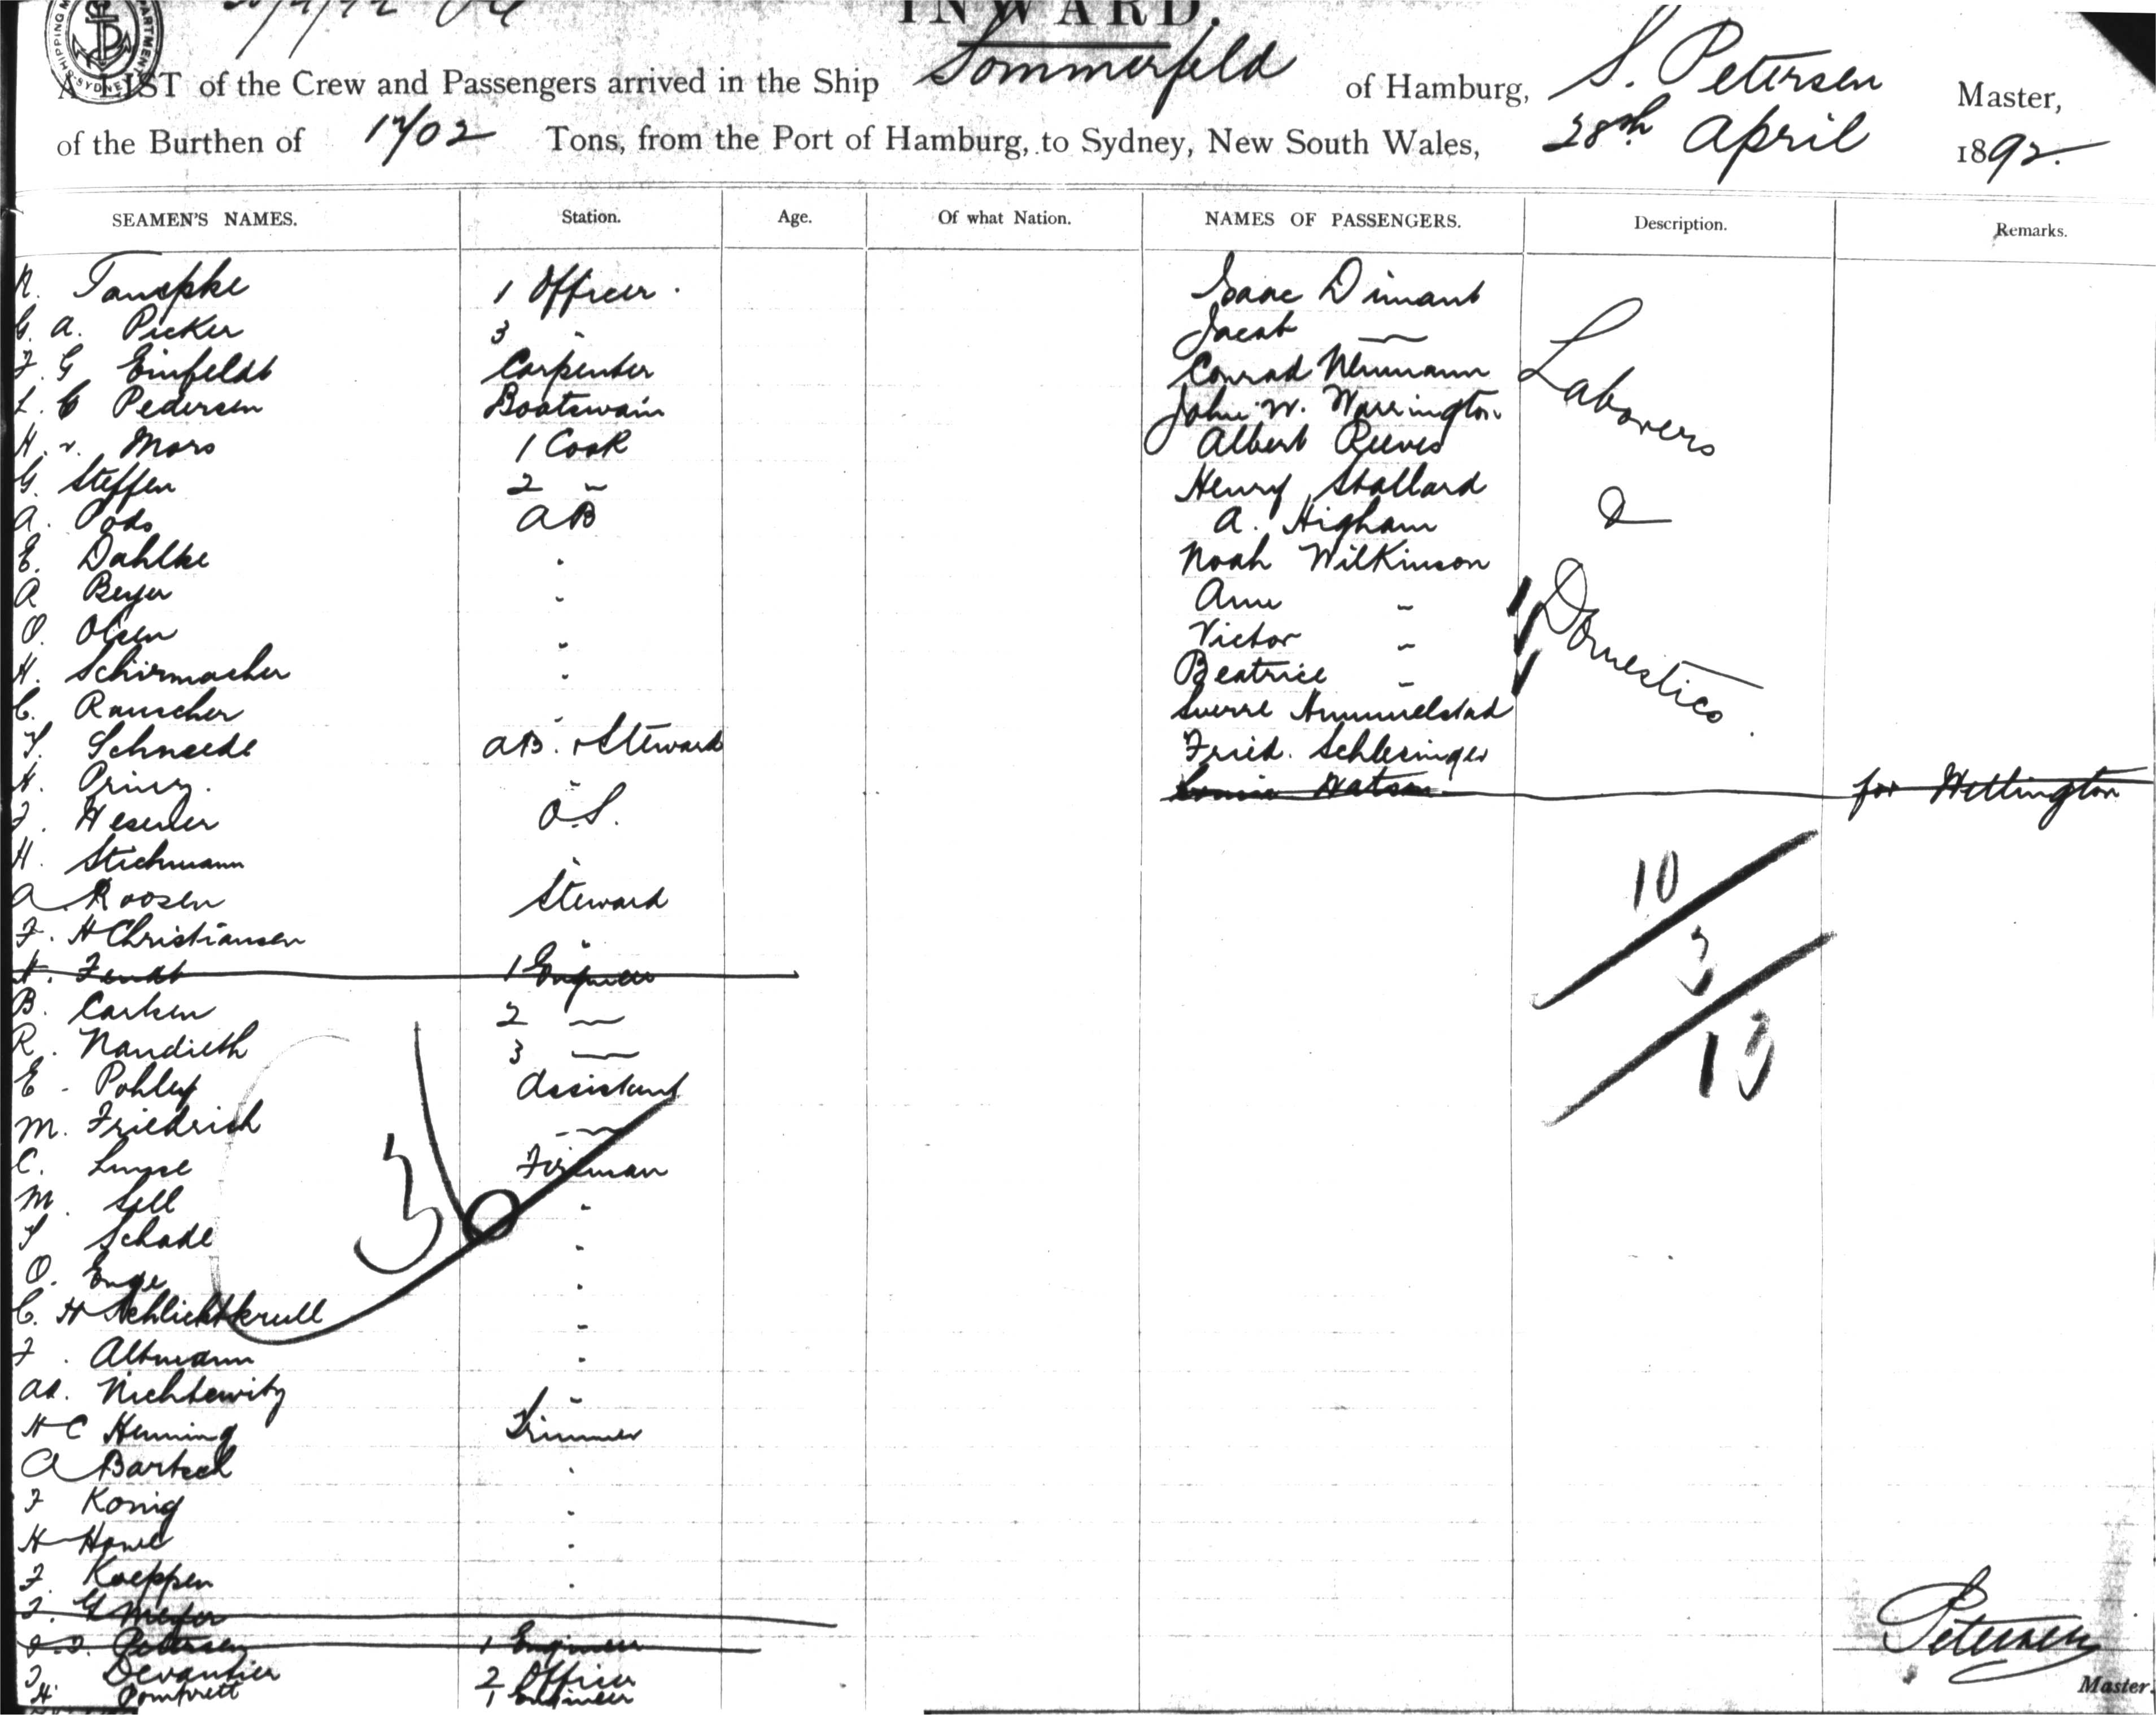 INWARD.
A LIST of the Crew and Passengers arrived in the Ship Sommerfeld of Hamburg, S. Petersen Master,
of the Burthen of 1702 Tons, from the Port of Hamburg, to Sydney, New South Wales, 28th April 1892.
SEAMEN'S NAMES. Station. Age. Of what Nation. NAMES OF PASSENGERS. Description. Remarks.
1 Officer. Isaac Dimant
G. A. Picker 3 " Jacob —
F. G Einfeldt Carpenter Conrad Neumann Laborers
L. C Pedersen Boatswain John W. Warrington
H. v. Mors 1 Cook Albert Reeves
G. Steffen 2 " Henry Stallard
A. Pods AB A. Higham &
E. Dahlke " Noah Wilkinson
A Beyer " " Domestics.
O. Olsen " Victor "
H. Schirmacher " Beatrice "
C. Rauscher "
Schneede AB. & Steward Fried. Schlesinger
H. Prinz. " Watson for Wellington
F. O.S.
H. Stichmann "
A Roosen Steward
F. H Christiansen "
1 Engineer
B. Carlsen 2 —
R. 3 —
E. Pohley Assistant
M. Friedrich —
C. Fireman
M. Sell "
Schade "
O. Enge "
C. H Schlichtkrull "
F. Altmann "
Ad. Nichtewitz "
H C Henning Trimmer
A Bartsch "
F Konig "
H "
F. Koeppen "
F. G Meyer
Petersen 1 Engineer
Devantier 2 Officer
H. Pomfrett 1 Engineer
36
10
3
13
Petersen
Master.